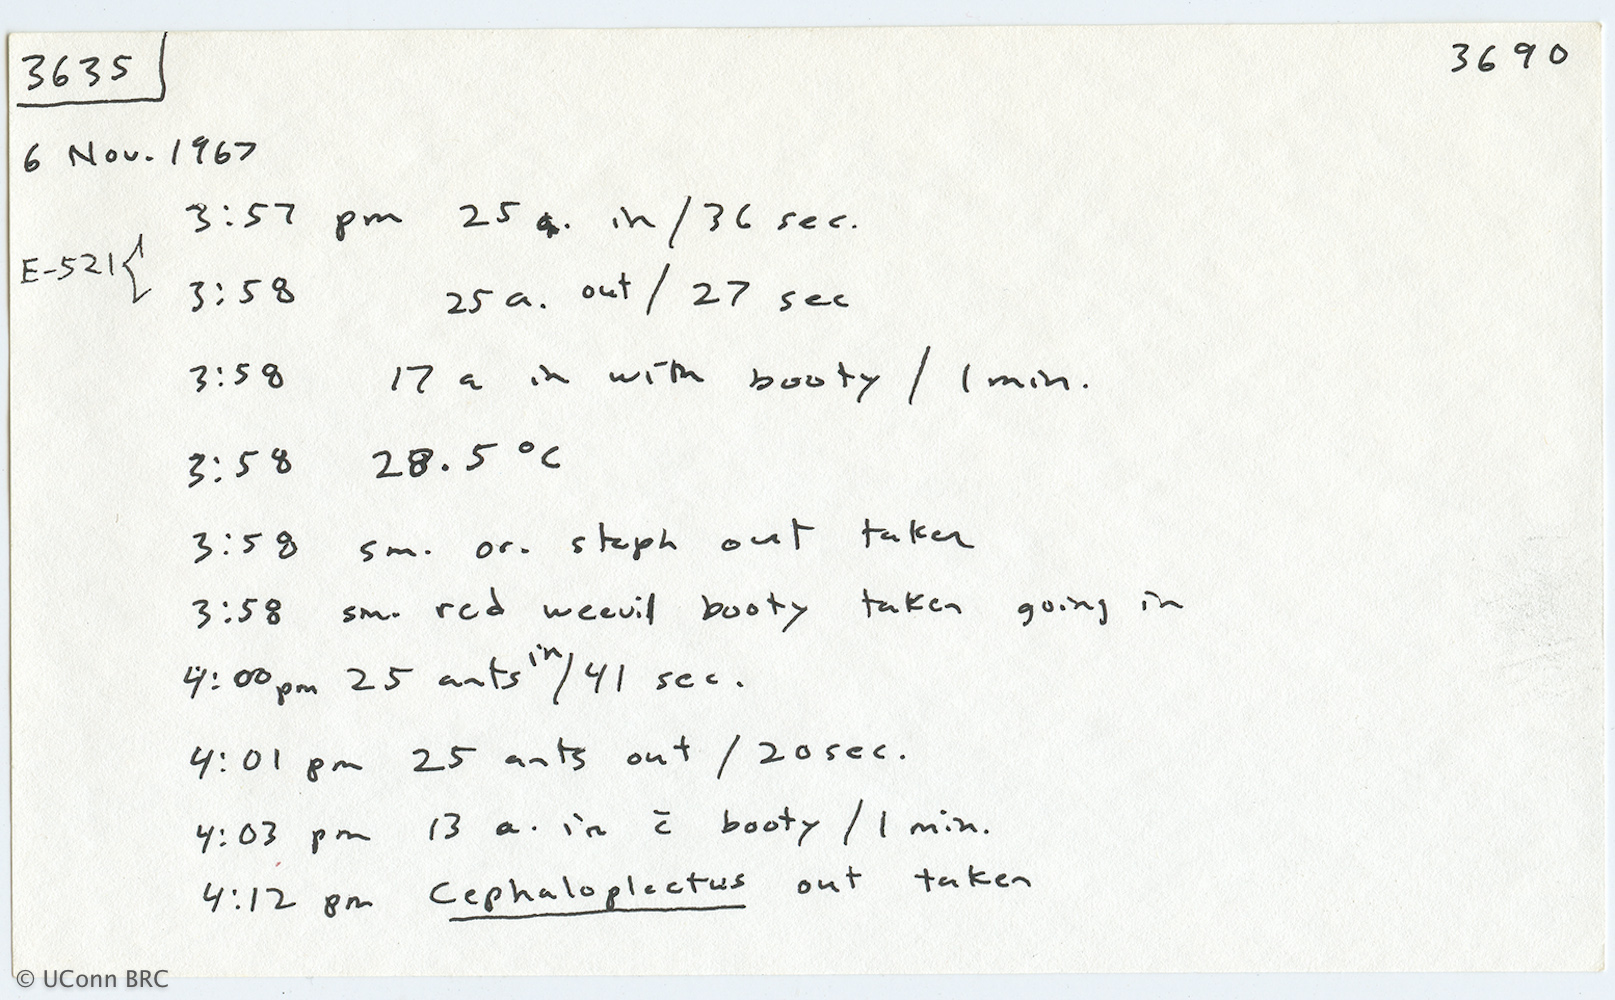 3635 3690
6 Nov. 1967
3:57 pm 25 a. in / 36 sec.
E-521 {
3:58 25 a. out / 27 sec
3:58 17 a in with booty / 1 min.
3:58 28.5 °C
3:58 sm. or. staph out taken
3:58 sm. red weevil booty taken going in
4:00 pm 25 ants in / 41 sec.
4:01 pm 25 ants out / 20 sec.
4:03 pm 13 a. in c̄ booty / 1 min.
4:12 pm Cephaloplectus out taken
© UConn BRC